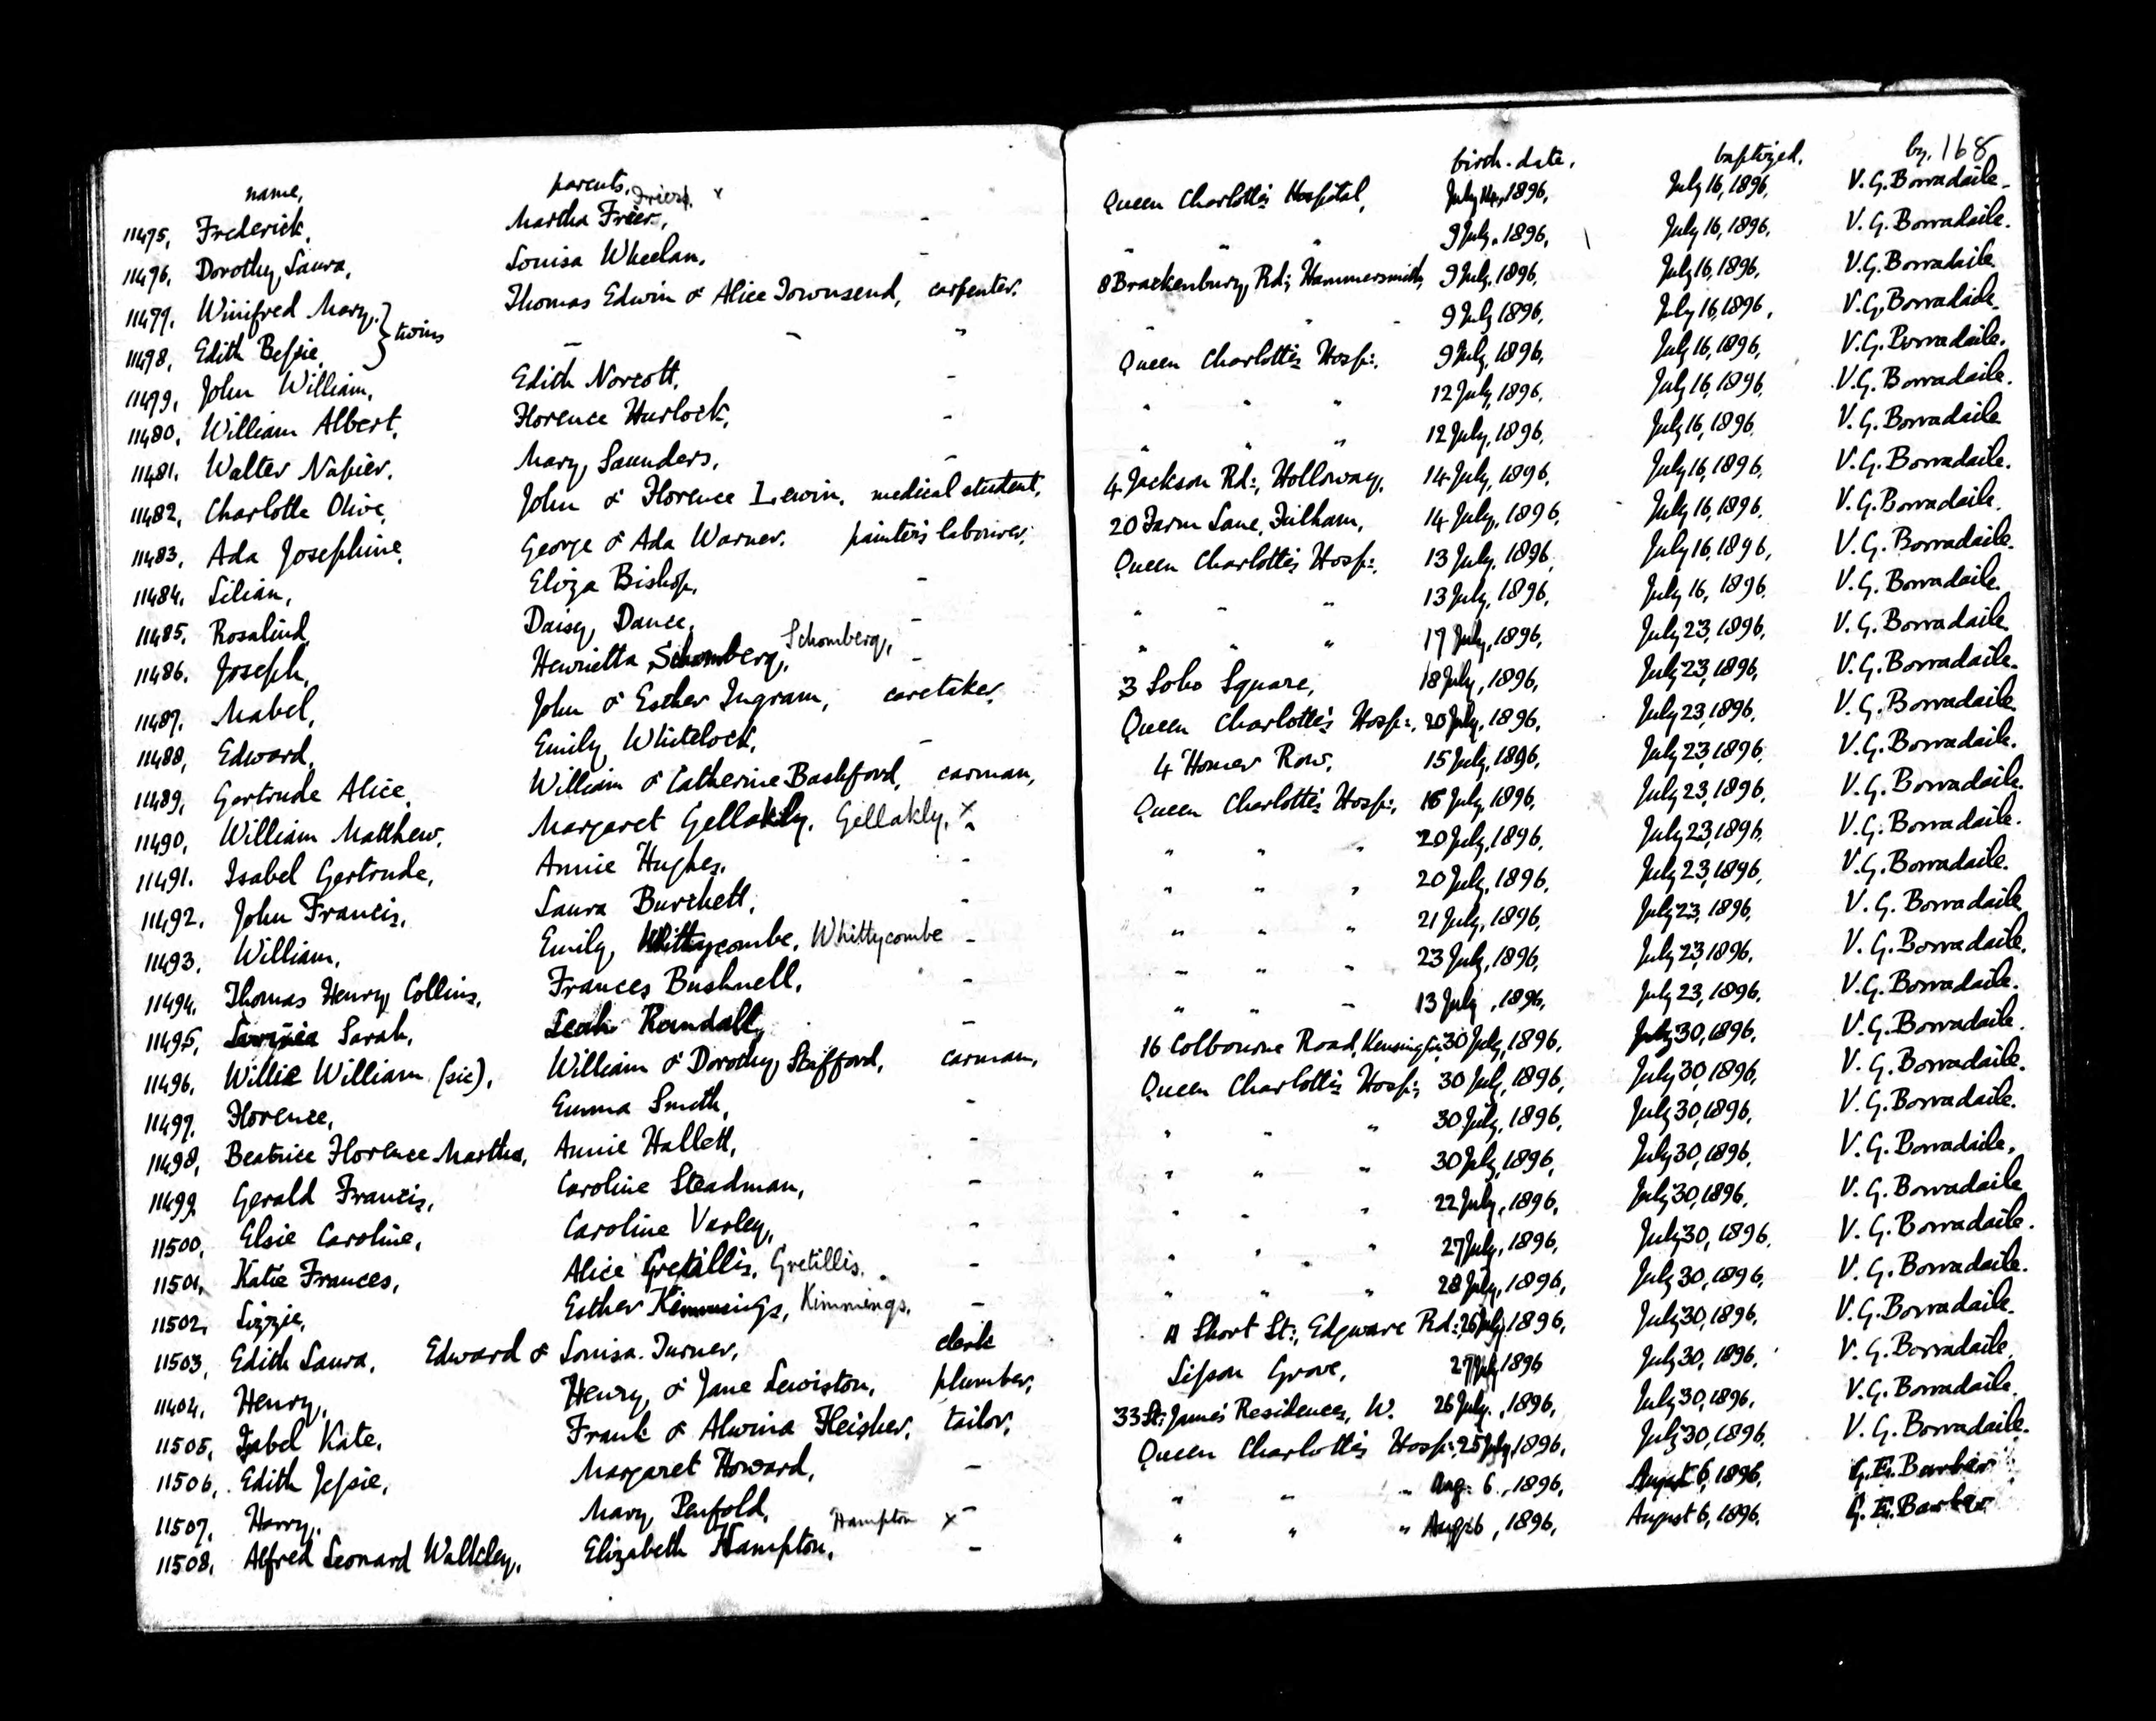 name, parents, birth-date, baptized, by, 168
11475, Frederick, Martha Frier, Frierp. x - Queen Charlotte's Hospital, July 1896, July 16, 1896, V. G. Borradaile
11476, Dorothy Laura, Louisa Wheelan, - " " " 9 July, 1896, July 16, 1896, V. G. Borradaile.
11477, Winifred Mary, } twins Thomas Edwin & Alice Townsend, carpenter, 8 Brackenbury Rd; Hammersmith, 9 July, 1896, July 16, 1896, V. G. Borradaile.
11498, Edith Bessie, - - " " " - 9 July 1896, July 16, 1896, V. G. Borradaile.
11479, John William, Edith Norcott, - Queen Charlotte's Hosp:, 9 July, 1896, July 16, 1896, V. G. Borradaile.
11480, William Albert, Florence Hurlock, - " " " 12 July, 1896, July 16, 1896, V. G. Borradaile.
11481, Walter Napier, Mary Saunders, - " " " 12 July, 1896, July 16, 1896, V. G. Borradaile.
11482, Charlotte Olive, John & Florence Lewin, medical student, 4 Jackson Rd:, Holloway, 14 July, 1896, July 16, 1896, V. G. Borradaile.
11483, Ada Josephine, George & Ada Warner, painter's labourer, 20 Farm Lane, Fulham, 14 July, 1896, July 16, 1896, V. G. Borradaile.
11484, Lilian, Eliza Bishop, - Queen Charlotte's Hosp:, 13 July, 1896, July 16, 1896, V. G. Borradaile.
11485, Rosalind, Daisy Dance, - " " " 13 July, 1896, July 16, 1896, V. G. Borradaile.
11486, Joseph, Henrietta Schomberg, Schomberg, - " " " 17 July, 1896, July 23, 1896, V. G. Borradaile.
11487, Mabel, John & Esther Ingram, caretaker, 3 Soho Square, 18 July, 1896, July 23, 1896, V. G. Borradaile.
11488, Edward, Emily Whitelock, - Queen Charlotte's Hosp:, 20 July, 1896, July 23, 1896, V. G. Borradaile.
11489, Gertrude Alice, William & Catherine Bashford, carman, 4 Homer Row, 15 July, 1896, July 23, 1896, V. G. Borradaile.
11490, William Matthew, Margaret Gellakly, Gellakly, x - Queen Charlotte's Hosp:, 16 July, 1896, July 23, 1896, V. G. Borradaile.
11491. Isabel Gertrude, Annie Hughes, - " " " 20 July, 1896, July 23, 1896, V. G. Borradaile.
11492. John Francis, Laura Burchett, - " " " 20 July, 1896, July 23, 1896, V. G. Borradaile.
11493. William, Emily Whittycombe, Whittycombe - " " " 21 July, 1896, July 23, 1896, V. G. Borradaile.
11494, Thomas Henry Collins, Frances Bushnell, - " " " 23 July, 1896, July 23, 1896, V. G. Borradaile.
11495, Sarah, Leah Randall, - " " " 13 July, 1896, July 23, 1896, V. G. Borradaile.
11496, Willie William (sic), William & Dorothy Stafford, carman, 16 Colbourne Road, Kensington, 30 July, 1896, July 30, 1896, V. G. Borradaile.
11497, Florence, Emma Smith, - Queen Charlotte's Hosp:, 30 July, 1896, July 30, 1896, V. G. Borradaile.
11498, Beatrice Florence Martha, Annie Hallett, - " " " 30 July, 1896, July 30, 1896, V. G. Borradaile.
11499, Gerald Francis, Caroline Steadman, - " " " 30 July, 1896, July 30, 1896, V. G. Borradaile.
11500, Elsie Caroline, Caroline Varley, - " " " 22 July, 1896, July 30, 1896, V. G. Borradaile.
11501, Katie Frances, Alice Gretillis, Gretillis. - " " " 27 July, 1896, July 30, 1896, V. G. Borradaile.
11502, Lizzie, Esther Kimmings, Kimmings. - " " " 28 July, 1896, July 30, 1896, V. G. Borradaile.
11503, Edith Laura, Edward & Louisa Turner, clerk Short St:, Edgware Rd: 26 July, 1896, July 30, 1896, V. G. Borradaile.
11404, Henry, Henry & Jane Lewiston, plumber, Lisson Grove, 27 July 1896 July 30, 1896, V. G. Borradaile.
11505, Isabel Kate, Frank & Alwina Fleisher, tailor, 33 St: James' Residences, W. 26 July, 1896, July 30, 1896, V. G. Borradaile.
11506, Edith Jessie, Margaret Howard, - Queen Charlotte's Hosp: 25 July, 1896, July 30, 1896, V. G. Borradaile.
11507, Harry, Mary Penfold, - " " " Aug: 6, 1896, August 6, 1896, G. E. Barber
11508, Alfred Leonard Walkley, Elizabeth Hampton, Hampton x - " " " Aug: 6, 1896, August 6, 1896, G. E. Barber